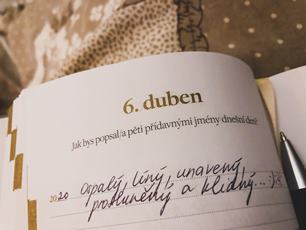 6. duben
Jak bys popsal/a pěti přídavnými jmény dnešní den?
2020 Ospalý, líný, unavený,
prosluněný a klidný... :)